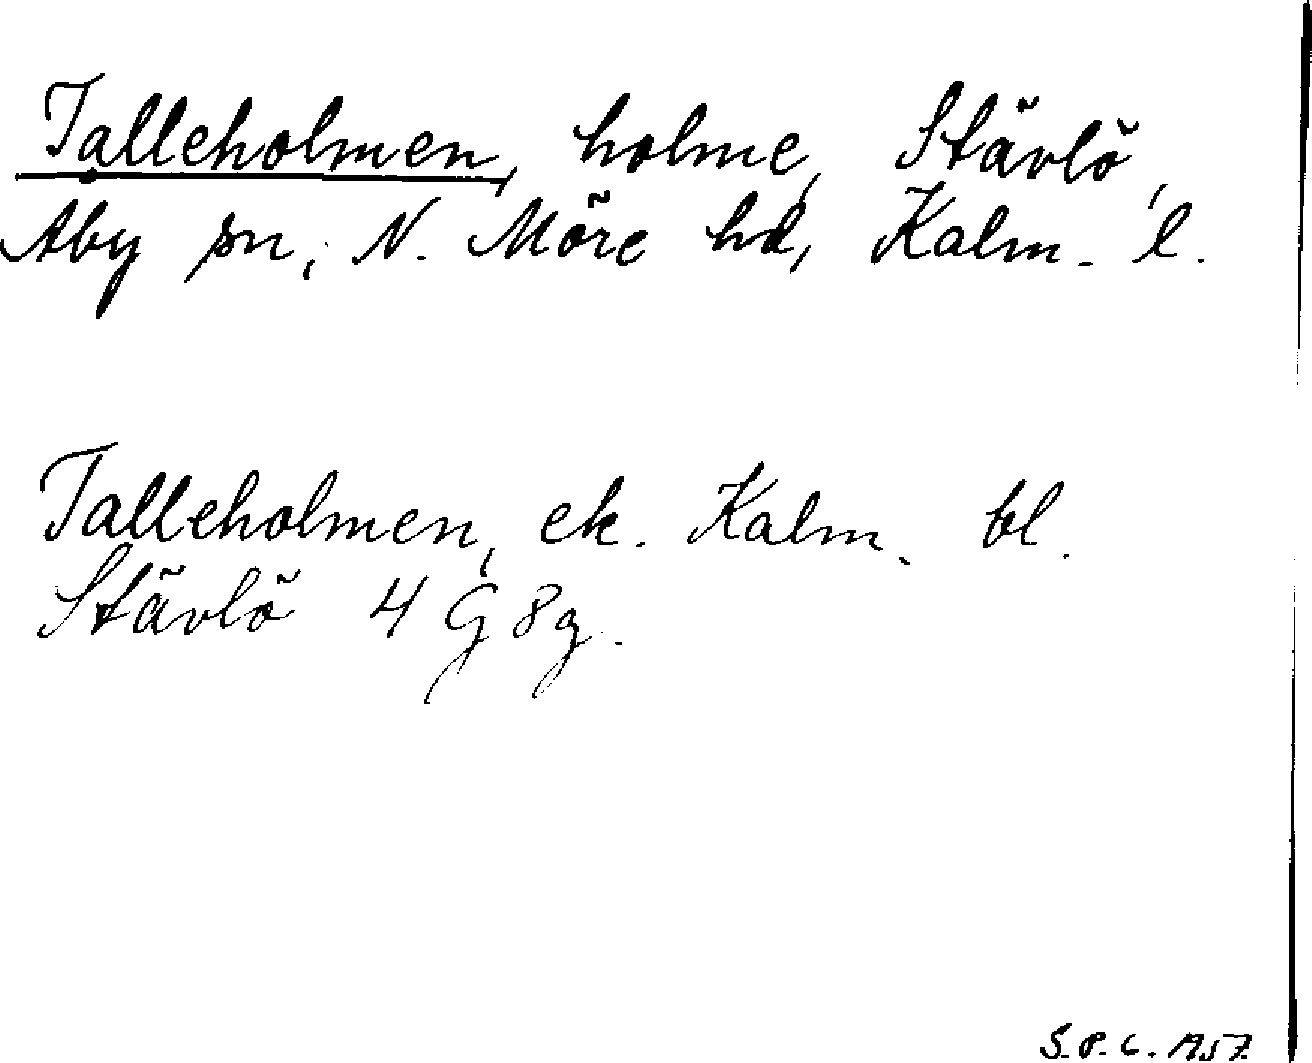 Talleholmen, holme, Stävlö,
Åby sn, N. Möre hd, Kalm. l.
Talleholmen, ek. Kalm. bl.
Stävlö 4 G 8g.
S.P.C. 1957.